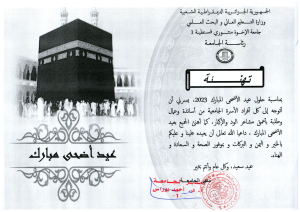 الجمهورية الجزائرية الديمقراطية الشعبية
وزارة التعليم العالي و البحث العلمي
جامعة الإخوة منتوري قسنطينة 1
رئاسة الجامعة
تهنئة
بمناسبة حلول عيد الأضحى المبارك 2023، يسرني أن
أتوجه إلى كل أفراد الأسرة الجامعية من أساتذة وعمال
وطلبة بأعمق مشاعر الود والإكبار، كما أهنئ الجميع بعيد
الأضحى المبارك، داعيا الله تعالى أن يعيده علينا و عليكم
بالخير و اليمن و البركات و بموفور الصحة و السعادة و
الهناء.
عيد سعيد، وكل عام وأنتم بخير
عيد أضحى مبارك